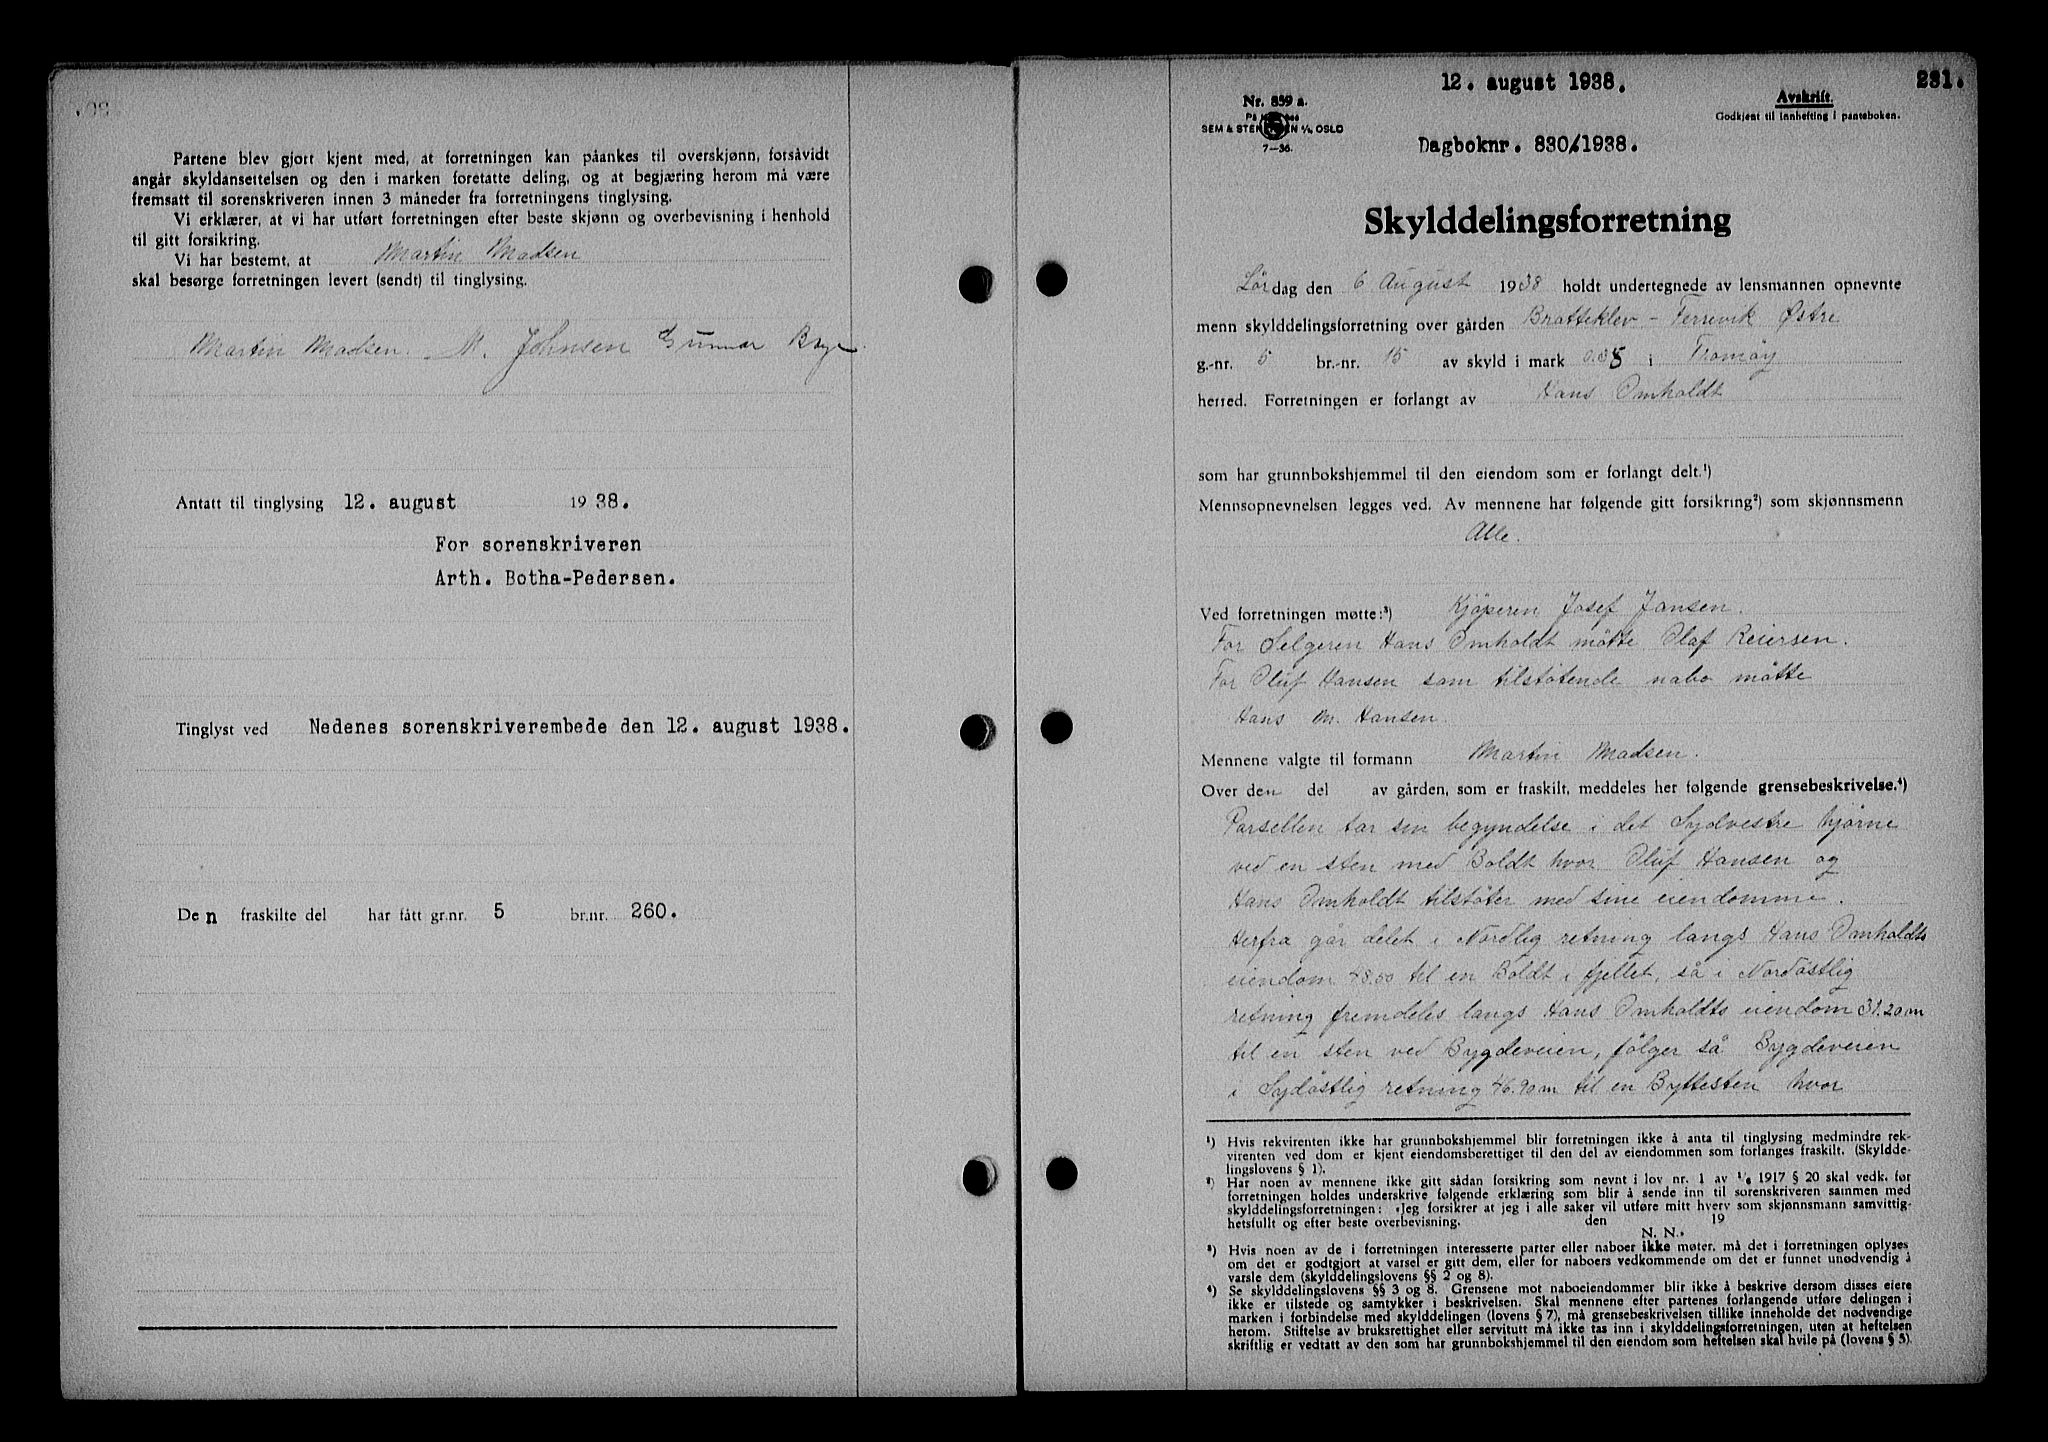 Partene blev gjort kjent med, at forretningen kan påankes til overskjønn, forsåvidt
angår skyldansettelsen og den i marken foretatte deling, og at begjæring herom må være
fremsatt til sorenskriveren innen 3 måneder fra forretningens tinglysing.
Vi erklærer, at vi har utført forretningen efter beste skjønn og overbevisning i henhold
til gitt forsikring.
Vi har bestemt, at Martin Madsen
skal besørge forretningen levert (sendt) til tinglysing.
Martin Madsen. M. Johnsen Gunnar
Antatt til tinglysing 12. august 1938.
For sorenskriveren
Arth. Botha-Pedersen.
Tinglyst ved Nedenes sorenskriverembede den 12. august 1938.
Den fraskilte del har fått gr.nr. 5 br.nr. 260.
12. august 1938.
231.
Nr. 859 a.
SEM & STENERSEN A/S, OSLO
7—36.
Avskrift.
Godkjent til innhefting i panteboken.
Dagboknr. 830/1938.
Skylddelingsforretning
Lørdag den 6 August 1938 holdt undertegnede av lensmannen opnevnte
menn skylddelingsforretning over gården Bratteklev - Terrevik Østre
g.-nr. 5 br.-nr. 15 av skyld i mark 0.35 i Tromøy
herred. Forretningen er forlangt av Hans Omholdt
som har grunnbokshjemmel til den eiendom som er forlangt delt.¹)
Mennsopnevnelsen legges ved. Av mennene har følgende gitt forsikring²) som skjønnsmenn
Alle.
Ved forretningen møtte:³) Kjøperen Josef Jansen.
For Selgeren Hans Omholdt møtte Olaf Reiersen.
For Oluf Hansen som tilstøtende nabo møtte
Hans M. Hansen.
Mennene valgte til formann Martin Madsen.
Over den del av gården, som er fraskilt, meddeles her følgende grensebeskrivelse.⁴)
Parsellen tar sin begyndelse i det Sydvestre hjørne
ved en sten med Boldt hvor Oluf Hansen og
Hans Omholdt tilstøter med sine eiendomme.
Herfra går delet i Nordlig retning langs Hans Omholdts
eiendom 48.00 til en Boldt i fjellet, så i Nordøstlig
retning fremdeles langs Hans Omholdts eiendom 31.20 m
til en sten ved Bygdeveien, følger så Bygdeveien
i Sydøstlig retning 46.90 m til en Byttesten hvor
¹) Hvis rekvirenten ikke har grunnbokshjemmel blir forretningen ikke å anta til tinglysing medmindre rek-
virenten ved dom er kjent eiendomsberettiget til den del av eiendommen som forlanges fraskilt. (Skyldde-
lingslovens § 1).
²) Har noen av mennene ikke gitt sådan forsikring som nevnt i lov nr. 1 av ¹/₆ 1917 § 20 skal vedk. før
forretningen holdes underskrive følgende erklæring som blir å sende inn til sorenskriveren sammen med
skylddelingsforretningen: «Jeg forsikrer at jeg i alle saker vil utføre mitt hverv som skjønnsmann samvittig-
hetsfullt og efter beste overbevisning. den 19
N. N.»
³) Hvis noen av de i forretningen interesserte parter eller naboer ikke møter, må det i forretningen oplyses
om det er godtgjort at varsel er gitt dem, eller for naboers vedkommende om det er funnet unødvendig å
varsle dem (skylddelingslovens §§ 2 og 8).
⁴) Se skylddelingslovens §§ 3 og 8. Grensene mot naboeiendommer blir ikke å beskrive dersom disses eiere
ikke er tilstede og samtykker i beskrivelsen. Skal mennene efter partenes forlangende utføre delingen i
marken i forbindelse med skylddelingen (lovens § 7), må grensebeskrivelsen tillike inneholde det nødvendige
herom. Stiftelse av bruksrettighet eller servitutt må ikke tas inn i skylddelingsforretningen, uten at heftelsen
skriftlig er vedtatt av den som har grunnbokshjemmel til den eiendom som heftelsen skal hvile på (lovens § 5).